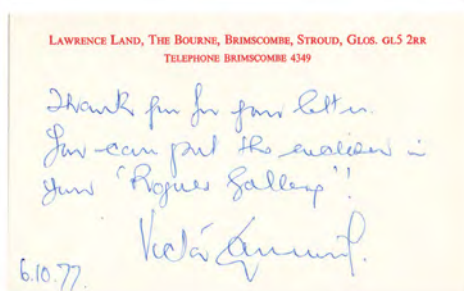 LAWRENCE LAND, THE BOURNE, BRIMSCOMBE, STROUD, GLOS. GL5 2RR
TELEPHONE BRIMSCOMBE 4349
Thank you for your letter.
You can put the enclosed in
your 'Rogues Gallery'!
Victor
6.10.77.